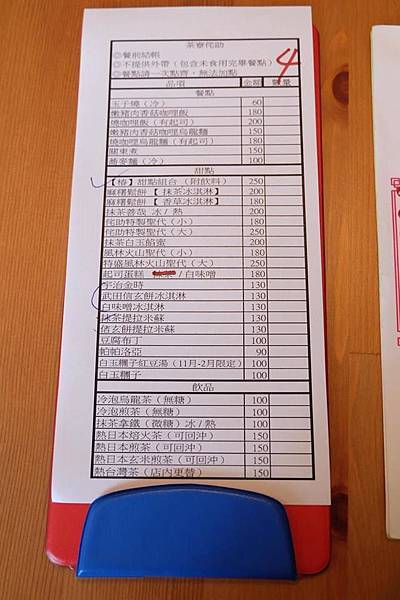 茶寮侘助
◎餐前結帳
◎不提供外帶（包含未食用完畢餐點）
◎餐點請一次點齊，無法加點
4
品項 金額 數量
餐點
玉子燒（冷） 60
嫩豬肉香菇咖哩飯 180
燒咖哩飯（有起司） 200
嫩豬肉香菇咖哩烏龍麵 150
燒咖哩烏龍麵（有起司） 180
關東煮 150
蕎麥麵（冷） 100
甜點
【椿】甜點組合（附飲料） 250
麻糬鬆餅【抹茶冰淇淋】 200
麻糬鬆餅【香草冰淇淋】 180
抹茶善哉 冰/熱 200
侘助特製聖代（小） 180
侘助特製聖代（大） 250
抹茶白玉餡蜜 200
風林火山聖代（小） 180
特盛風林火山聖代（大） 250
起司蛋糕 /白味噌 180
宇治金時 130
武田信玄餅冰淇淋 130
白味噌冰淇淋 130
抹茶提拉米蘇 130
信玄餅提拉米蘇 130
豆腐布丁 100
帕帕洛亞 90
白玉糰子紅豆湯（11月-2月限定） 100
白玉糰子 100
飲品
冷泡烏龍茶（無糖） 100
冷泡煎茶（無糖） 100
抹茶拿鐵（微糖）冰/熱 150
熱日本焙火茶（可回沖） 150
熱日本煎茶（可回沖） 150
熱日本玄米煎茶（可回沖） 150
熱台灣茶（店內更替） 150